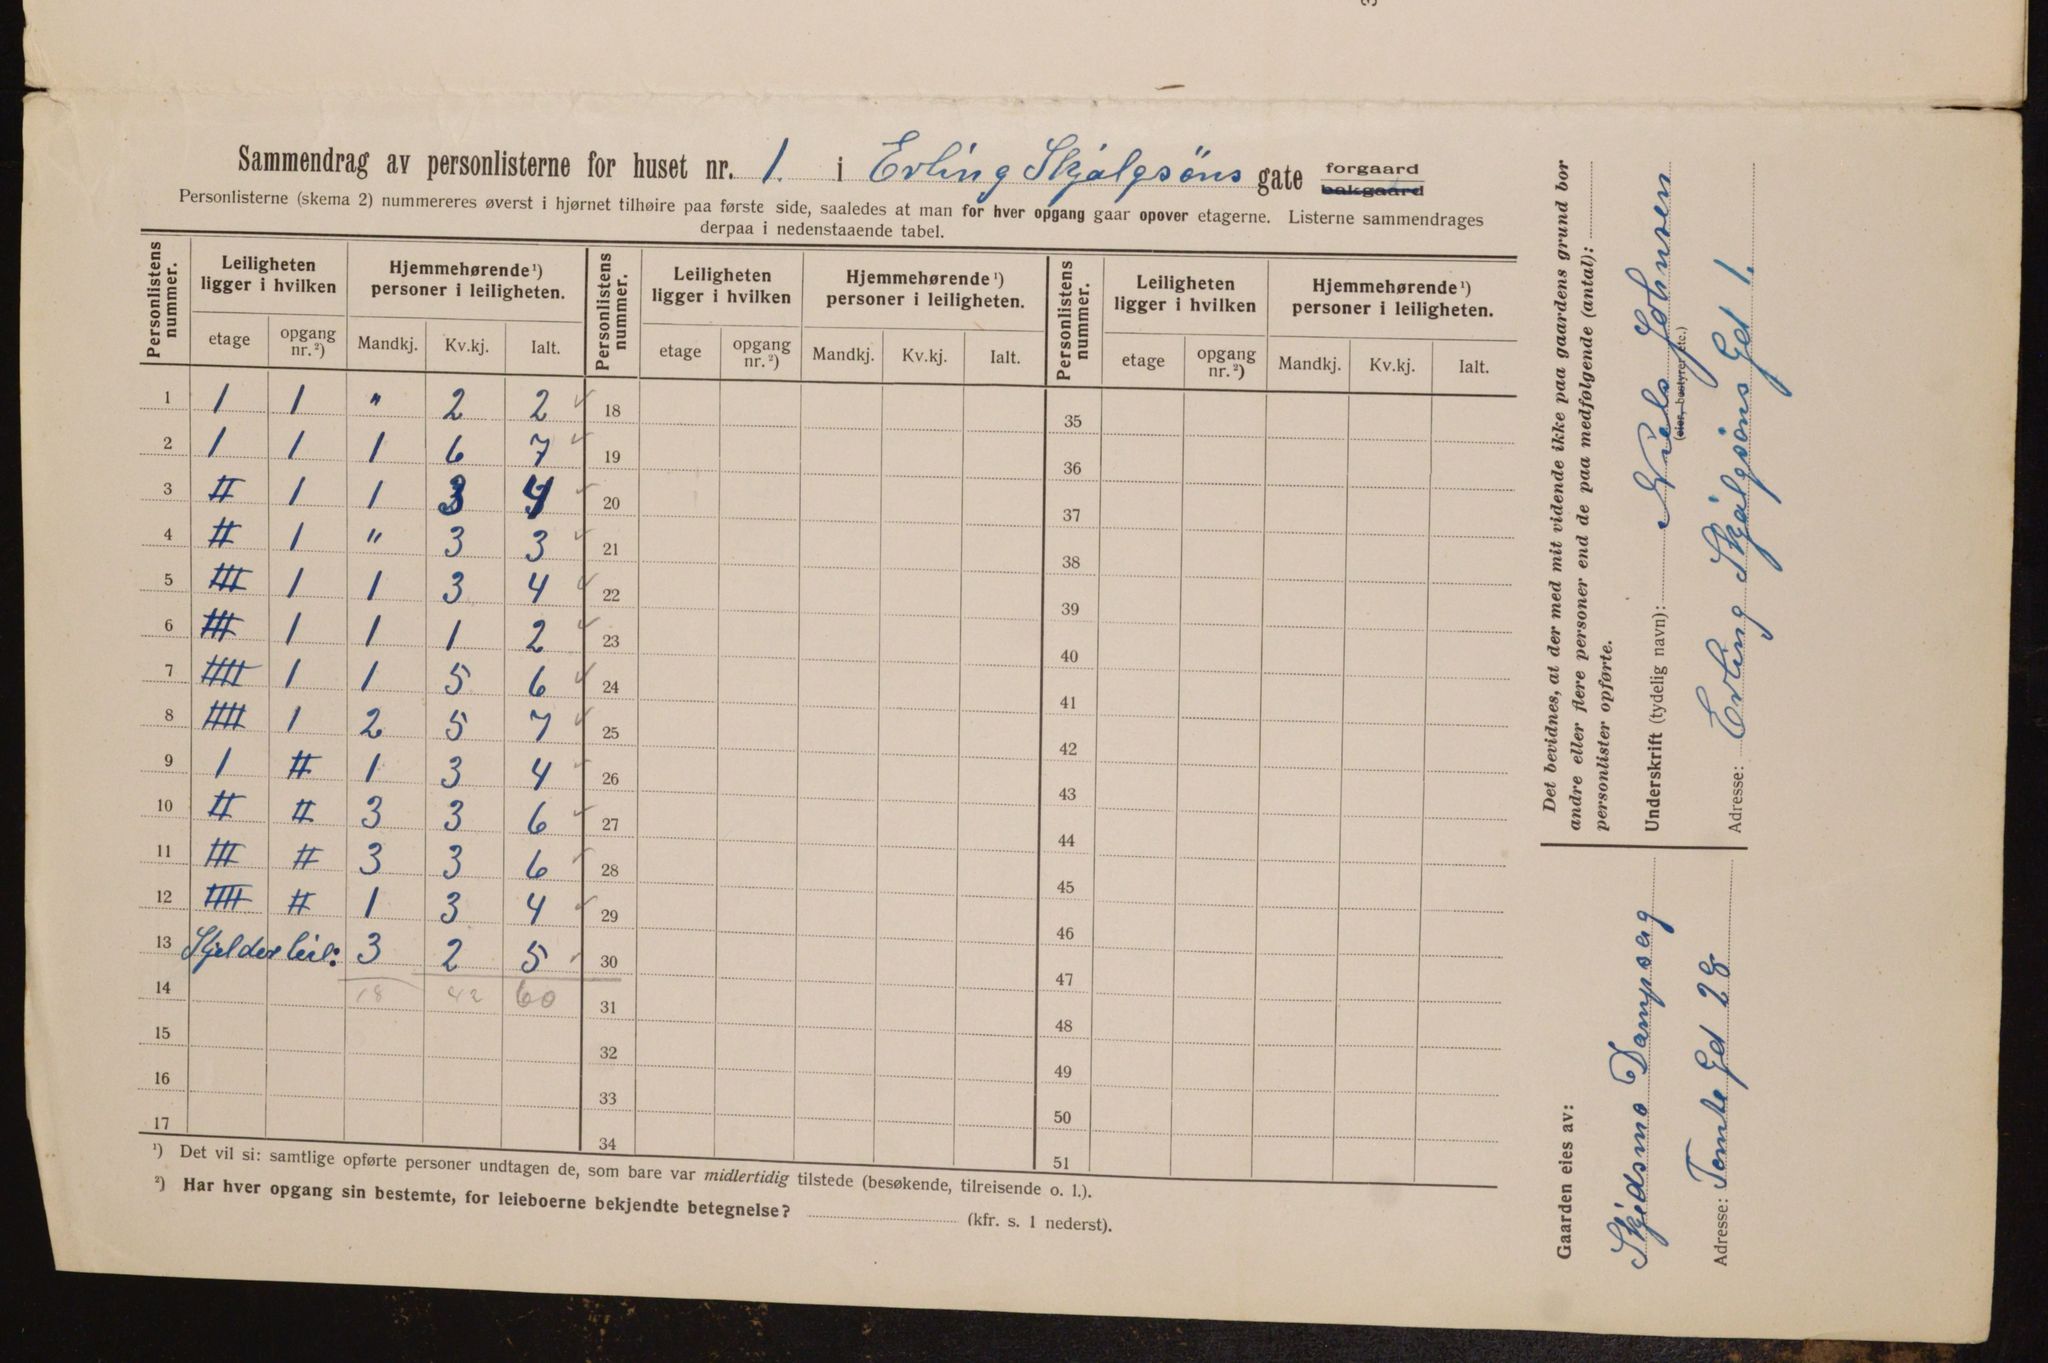 Sammendrag av personlisterne for huset nr. 1. i Erling Skjalgsöns gate forgaard bakgaard
Personlisterne (skema 2) nummereres øverst i hjørnet tilhøire paa første side, saaledes at man for hver opgang gaar opover etagerne. Listerne sammendrages
derpaa i nedenstaaende tabel.
Personlistens nummer. Leiligheten ligger i hvilken Hjemmehørende ¹) personer i leiligheten. Personlistens nummer. Leiligheten ligger i hvilken Hjemmehørende ¹) personer i leiligheten. Personlistens nummer. Leiligheten ligger i hvilken Hjemmehørende ¹) personer i leiligheten.
etage opgang nr. ²) Mandkj. Kv.kj. Ialt. etage opgang nr. ²) Mandkj. Kv.kj. Ialt. etage opgang nr. ²) Mandkj. Kv.kj. Ialt.
1 I I " 2 2 18 35
2 I I 1 6 7 19 36
3 II I 1 3 4 20 37
4 II I " 3 3 21 38
5 III I 1 3 4 22 39
6 III I 1 1 2 23 40
7 IIII I 1 5 6 24 41
8 IIII I 2 5 7 25 42
9 I II 1 3 4 26 43
10 II II 3 3 6 27 44
11 III II 3 3 6 28 45
12 IIII II 1 3 4 29 46
13 Kjelder leil: 3 2 5 30 47
14 18 42 60 31 48
15 32 49
16 33 50
17 34 51
¹) Det vil si: samtlige opførte personer undtagen de, som bare var midlertidig tilstede (besøkende, tilreisende o. l.).
²) Har hver opgang sin bestemte, for leieboerne bekjendte betegnelse? (kfr. s. 1 nederst).
Det bevidnes, at der med mit vidende ikke paa gaardens grund bor
andre eller flere personer end de paa medfølgende (antal):
personlister opførte.
Underskrift (tydelig navn): Niels Johnsen
(eier, bestyrer etc.)
Adresse: Erling Skjalgsöns Gd 1.
Gaarden eies av:
Skjedsmo Dampsag
Adresse: Tomte Gd 28